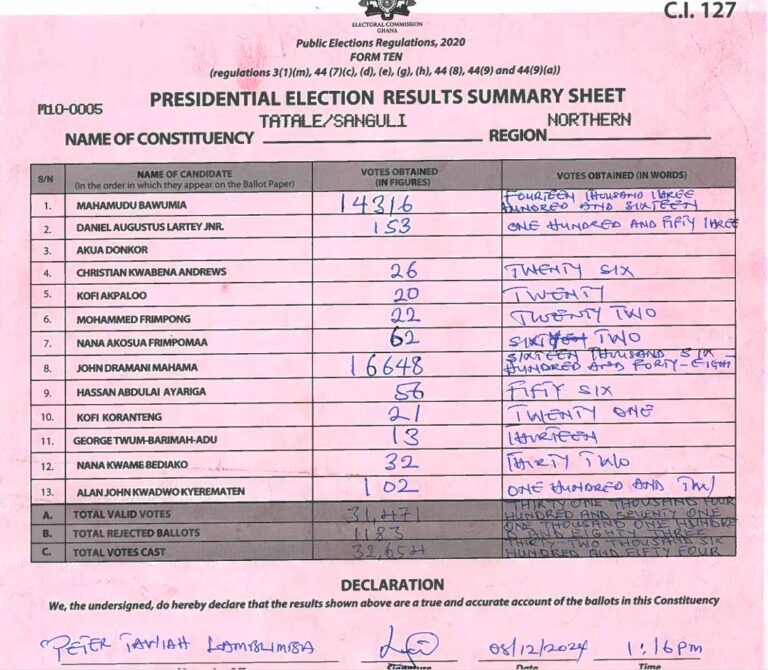 C.I. 127
ELECTORAL COMMISSION
GHANA
Public Elections Regulations, 2020
FORM TEN
(regulations 3(1)(m), 44 (7)(c), (d), (e), (g), (h), 44 (8), 44(9) and 44(9)(a))
M10-0005
PRESIDENTIAL ELECTION RESULTS SUMMARY SHEET
NAME OF CONSTITUENCY TATALE/SANGULI REGION NORTHERN
S/N NAME OF CANDIDATE (In the order in which they appear on the Ballot Paper) VOTES OBTAINED (IN FIGURES) VOTES OBTAINED (IN WORDS)
1. MAHAMUDU BAWUMIA 14316 FOURTEEN THOUSAND THREE HUNDRED AND SIXTEEN
2. DANIEL AUGUSTUS LARTEY JNR. 153 ONE HUNDRED AND FIFTY THREE
3. AKUA DONKOR
4. CHRISTIAN KWABENA ANDREWS 26 TWENTY SIX
5. KOFI AKPALOO 20 TWENTY
6. MOHAMMED FRIMPONG 22 TWENTY TWO
7. NANA AKOSUA FRIMPOMAA 62 TWO
8. JOHN DRAMANI MAHAMA 16648 SIXTEEN THOUSAND SIX HUNDRED AND FORTY-EIGHT
9. HASSAN ABDULAI AYARIGA 56 FIFTY SIX
10. KOFI KORANTENG 21 TWENTY ONE
11. GEORGE TWUM-BARIMAH-ADU 13 THIRTEEN
12. NANA KWAME BEDIAKO 32 THIRTY TWO
13. ALAN JOHN KWADWO KYEREMATEN 102 ONE HUNDRED AND TWO
A. TOTAL VALID VOTES 31,471 THIRTY ONE THOUSAND FOUR HUNDRED AND SEVENTY ONE
B. TOTAL REJECTED BALLOTS 1183 ONE THOUSAND ONE HUNDRED AND EIGHTY THREE
C. TOTAL VOTES CAST 32,654 THIRTY-TWO THOUSAND SIX HUNDRED AND FIFTY FOUR
DECLARATION
We, the undersigned, do hereby declare that the results shown above are a true and accurate account of the ballots in this Constituency
PETER TAWIAH 08/12/2024 1:16PM
Signature Date Time